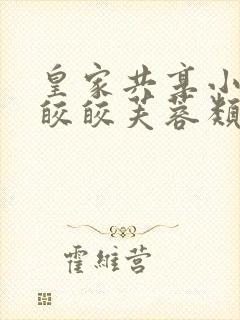 皇家共享小
皎皎芙蓉類
霍維营